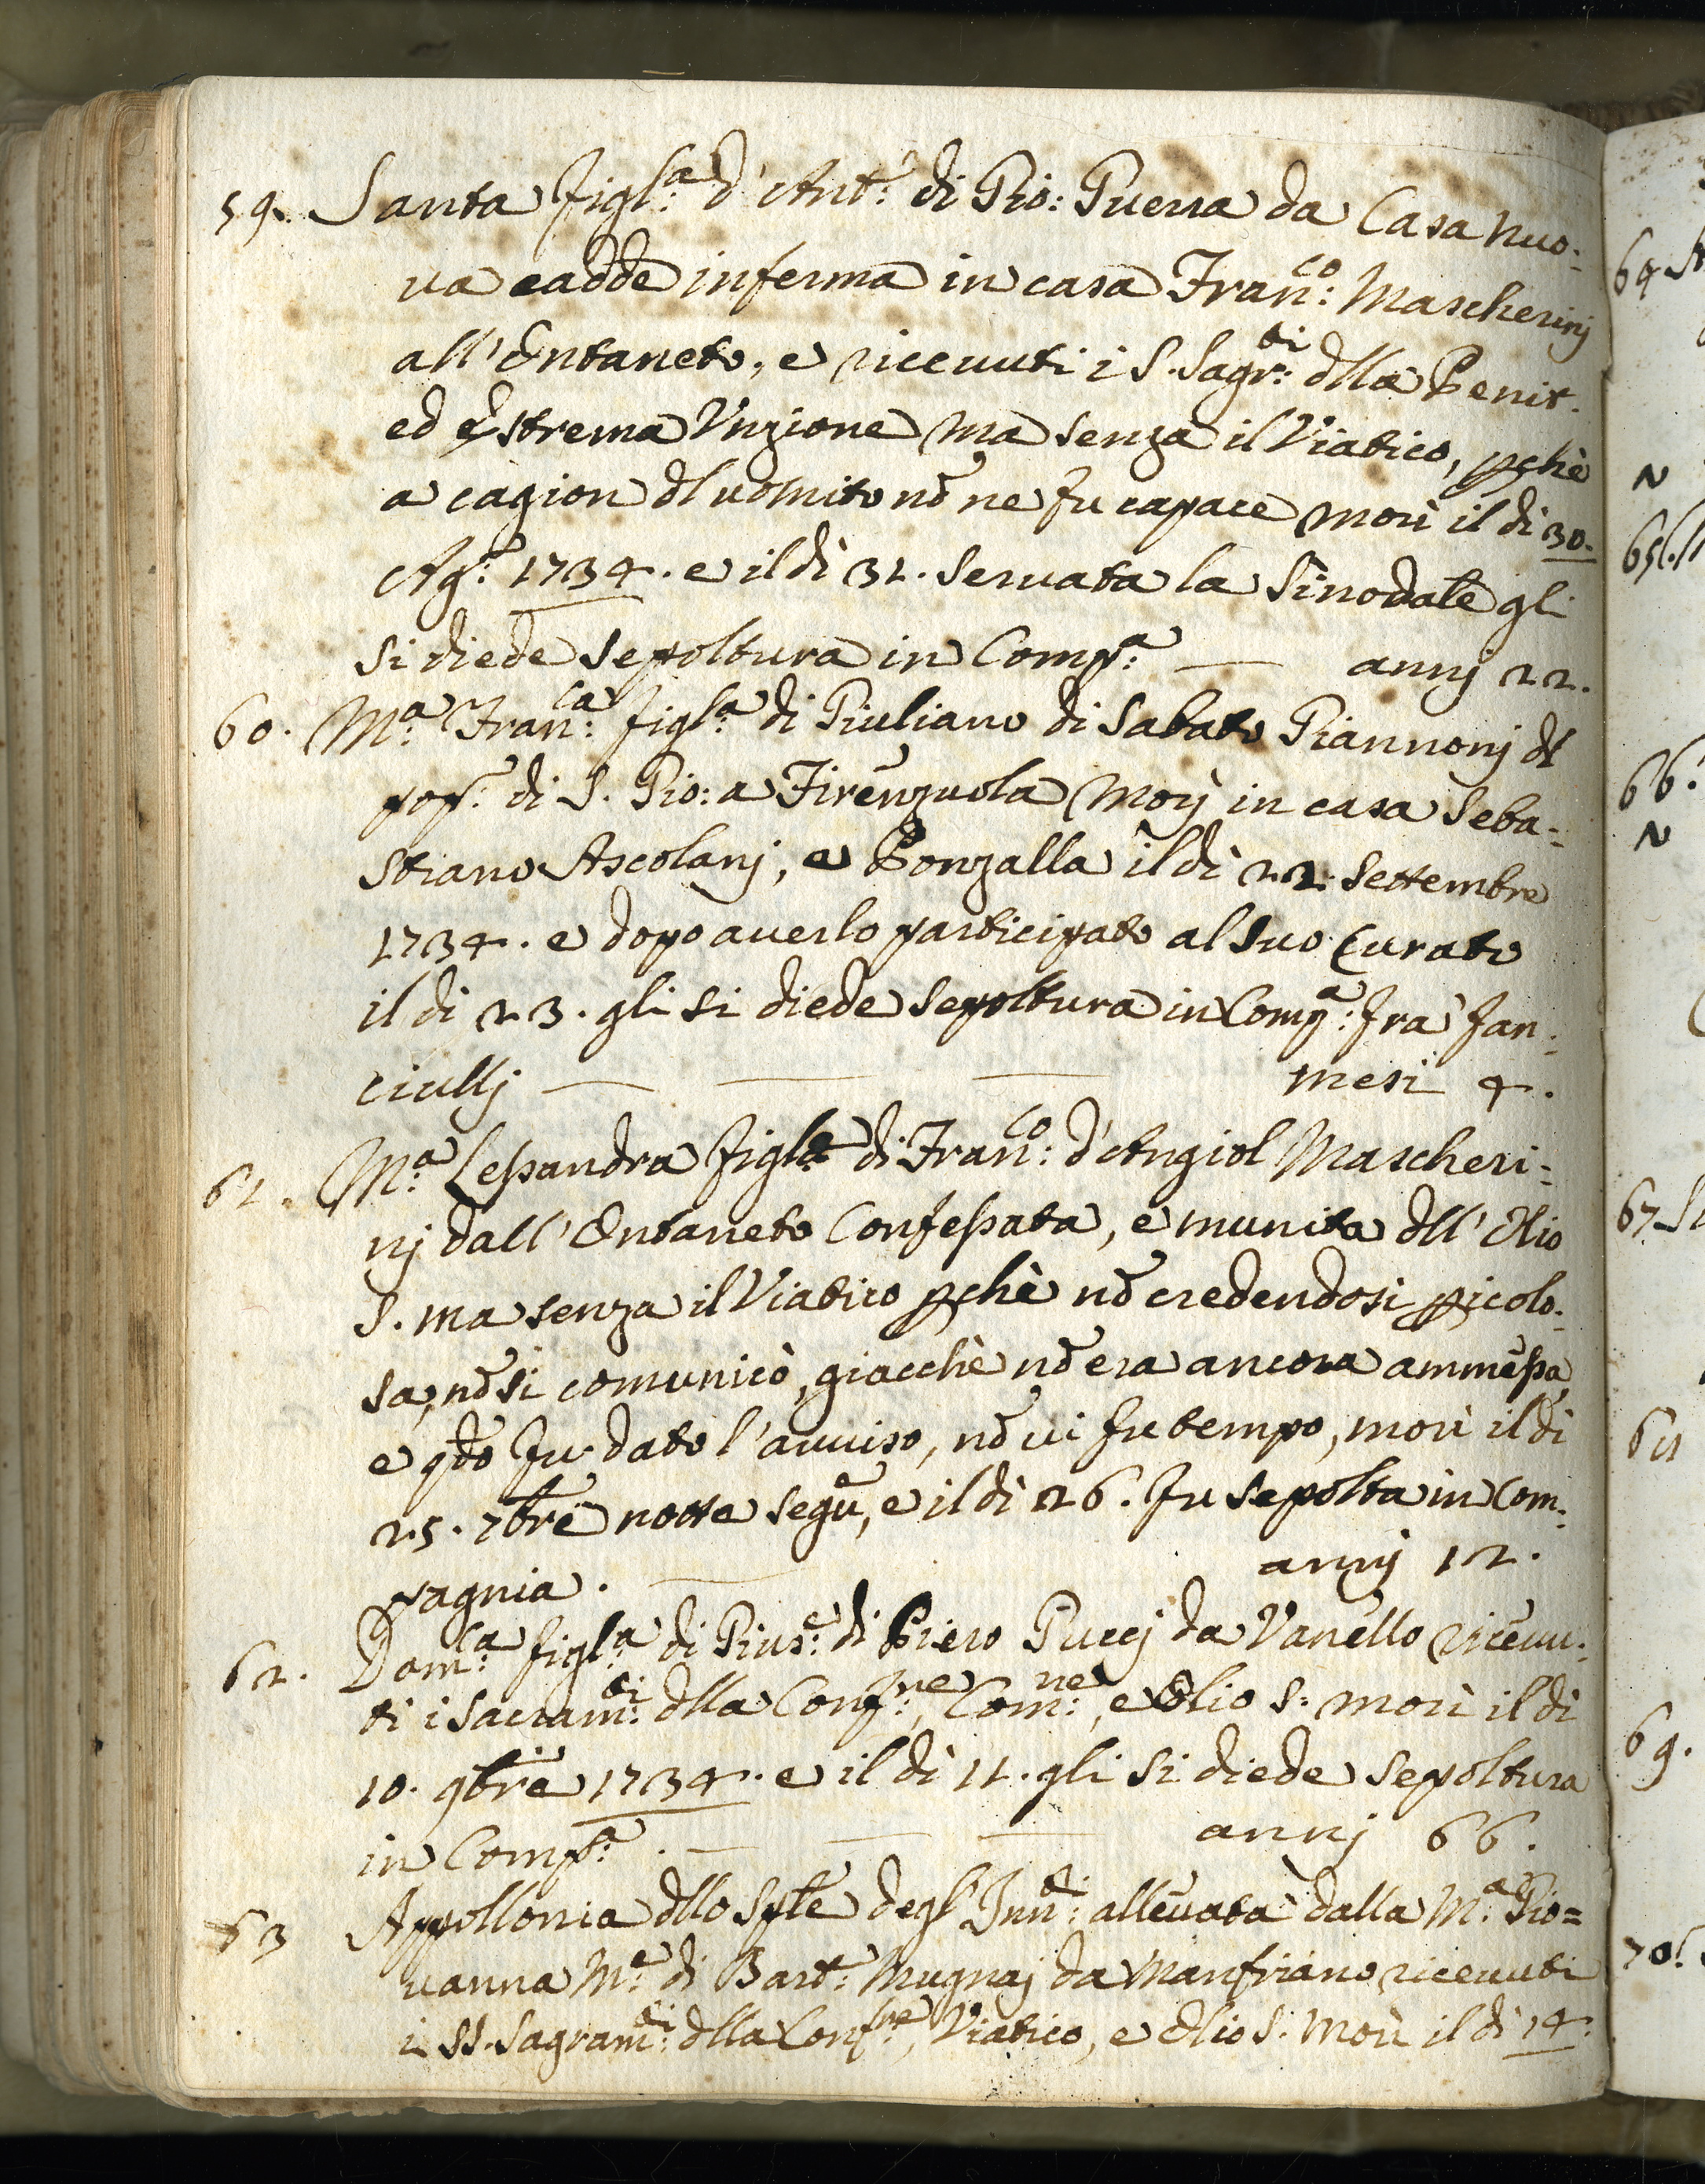 59. Santa figl:a d'Ant:o di Gio: Guerra da Casa nuo-
va cadde inferma in casa Fran:co Mascherinj
all'Entaneto, e ricevuti i S. Sagr:ti dlla Penit.
ed Estrema Unzione ma senza il Viatico, pchè
a cagion dl vomito nō ne fu capace morì il dì 30.
Ag:o 1734. e il dì 31. servata la Sinodale gli
si diede sepoltura in Comp:a — annj 22.
60. M:a Fran:ca figl:a di Giuliano di Sabato Giannonj dl
pop:o di S. Gio: a Firenzuola morì in casa Seba-
stiano Ascolanj, a Bonzalla il dì 22. Settembre
1734. e dopo averlo participato al suo Curato
il di 23. gli si diede sepoltura in Comp:a fra fan-
ciullj — — — mesi 4.
61. M:a Lessandra figla di Fran:co d'Angiol Mascheri-
nj dall'Entaneto Confessata, e munita dll'Olio
S. ma senza il Viatico pchè nō credendosi picolo-
sa, nō si comunicò, giacchè nō era ancora ammessa,
e qdo fu dato l'avviso, nō vi fu tempo, morì il dì
25. 7bre notte segu:e, e il dì 26. fu sepolta in Com-
pagnia. — annj 12.
62. Dom:ca figl:a di Gius:e di Piero Puccj da Vanello ricevu-
ti i Sacram:ti dlla Conf:ne, Com:ne, e Olio S: morì il dì
10. 9bre 1734. e il dì 11. gli si diede sepoltura
in Comp:a. — — — annj 66.
63 Appollonia dllo Sple degl'Inn:ti allevata dalla M:a Gio=
vanna M:e di Bart:o Mugnaj da Manfriano ricevuti
i SS. Sagram:ti dlla Conf:ne, Viatico, e Olio S. Morì il dì 14.